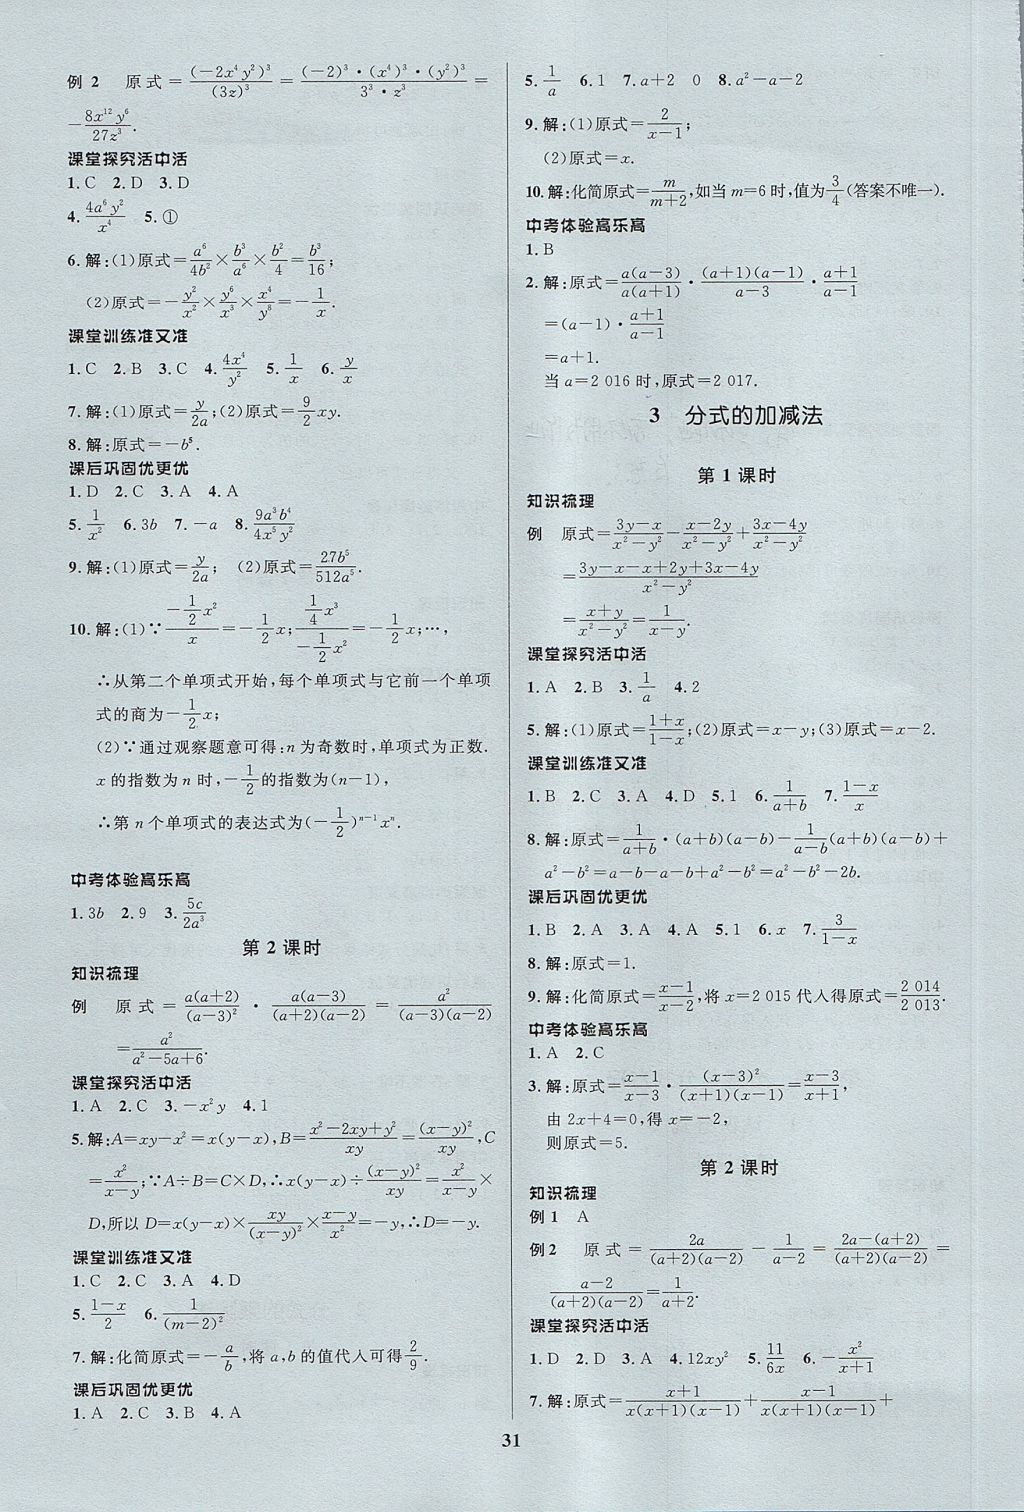 例 2　原式=\frac{(-2x^4y^2)^3}{(3z)^3}=\frac{(-2)^3·(x^4)^3·(y^2)^3}{3^3·z^3}=
-\frac{8x^{12}y^6}{27z^3}.
课堂探究活中活
1.C　2.D　3.D
4.\frac{4a^6y^2}{x^4}　5.①
6.解:(1)原式=\frac{a^6}{4b^2}×\frac{b^3}{a^6}×\frac{b^2}{4}=\frac{b^3}{16};
(2)原式=-\frac{y^2}{x^2}×\frac{y^6}{x^3}×\frac{x^4}{y^8}=-\frac{1}{x}.
课堂训练准又准
1.C　2.B　3.C　4.\frac{4x^4}{y^2}　5.\frac{1}{x}　6.\frac{y}{x}
7.解:(1)原式=\frac{y}{2a};(2)原式=\frac{9}{2}xy.
8.解:原式=-b^5.
课后巩固优更优
1.D　2.C　3.A　4.A
5.\frac{1}{x^2}　6.3b　7.-a　8.\frac{9a^3b^4}{4x^5y^2}
9.解:(1)原式=\frac{y}{2a};　(2)原式=\frac{27b^5}{512a^5}.
10.解:(1)∵\frac{-\frac{1}{2}x^2}{x}=-\frac{1}{2}x;\frac{\frac{1}{4}x^3}{-\frac{1}{2}x^2}=-\frac{1}{2}x;…,
∴从第二个单项式开始,每个单项式与它前一个单项
式的商为-\frac{1}{2}x;
(2)∵通过观察题意可得:n为奇数时,单项式为正数.
x的指数为n时,-\frac{1}{2}的指数为(n-1),
∴第n个单项式的表达式为(-\frac{1}{2})^{n-1}x^n.
中考体验高乐高
1.3b　2.9　3.\frac{5c}{2a^3}
第 2 课时
知识梳理
例　原式=\frac{a(a+2)}{(a-3)^2}·\frac{a(a-3)}{(a+2)(a-2)}=\frac{a^2}{(a-3)(a-2)}
=\frac{a^2}{a^2-5a+6}.
课堂探究活中活
1.A　2.C　3.-x^2y　4.1
5.解:A=xy-x^2=x(y-x),B=\frac{x^2-2xy+y^2}{xy}=\frac{(x-y)^2}{xy},C
=\frac{x^2}{x-y};∵A÷B=C×D,∴x(y-x)÷\frac{(x-y)^2}{xy}=\frac{x^2}{x-y}×
D,所以D=x(y-x)×\frac{xy}{(x-y)^2}×\frac{x-y}{x^2}=-y,∴D=-y.
课堂训练准又准
1.C　2.C　3.A　4.D
5.\frac{1-x}{2}　6.\frac{1}{(m-2)^2}
7.解:化简原式=-\frac{a}{b},将a,b的值代人可得\frac{2}{9}.
课后巩固优更优
1.A　2.C　3.B　4.A
5.\frac{1}{a}　6.1　7.a+2　0　8.a^2-a-2
9.解:(1)原式=\frac{2}{x-1};
(2)原式=x.
10.解:化简原式=\frac{m}{m+2},如当m=6时,值为\frac{3}{4}(答案不唯一).
中考体验高乐高
1.B
2.解:原式=\frac{a(a-3)}{a(a+1)}·\frac{(a+1)(a-1)}{a-3}·\frac{a+1}{a-1}
=(a-1)·\frac{a+1}{a-1}
=a+1.
当a=2 016时,原式=2 017.
3　分式的加减法
第 1 课时
知识梳理
例　原式=\frac{3y-x}{x^2-y^2}-\frac{x-2y}{x^2-y^2}+\frac{3x-4y}{x^2-y^2}
=\frac{3y-x-x+2y+3x-4y}{x^2-y^2}
=\frac{x+y}{x^2-y^2}=\frac{1}{x-y}.
课堂探究活中活
1.A　2.B　3.\frac{1}{a}　4.2
5.解:(1)原式=\frac{1+x}{1-x};(2)原式=x-y;(3)原式=x-2.
课堂训练准又准
1.B　2.C　3.A　4.D　5.1　6.\frac{1}{a+b}　7.\frac{1-x}{x}
8.解:原式=\frac{1}{a+b}·(a+b)(a-b)-\frac{1}{a-b}(a+b)(a-b)+
a^2-b^2=a-b-a-b+a^2-b^2=a^2-b^2-2b.
课后巩固优更优
1.B　2.A　3.A　4.A　5.1　6.x　7.\frac{3}{1-x}
8.解:原式=1.
9.解:化简原式=\frac{x-1}{x-2},将x=2 015代人得原式=\frac{2 014}{2 013}.
中考体验高乐高
1.A　2.C
3.解:原式=\frac{x-1}{x-3}·\frac{(x-3)^2}{(x+1)(x-1)}=\frac{x-3}{x+1},
由2x+4=0,得x=-2,
则原式=5.
第 2 课时
知识梳理
例 1　A
例 2　原式=\frac{2a}{(a+2)(a-2)}-\frac{1}{a-2}=\frac{2a-(a+2)}{(a+2)(a-2)}=
\frac{a-2}{(a+2)(a-2)}=\frac{1}{a+2}.
课堂探究活中活
1.D　2.D　3.C　4.12xy^2　5.\frac{11}{6x}　6.-\frac{x^2}{x+1}
7.解:原式=\frac{x+1}{x(x+1)(x-1)}+\frac{x-1}{x(x+1)(x-1)}+
31